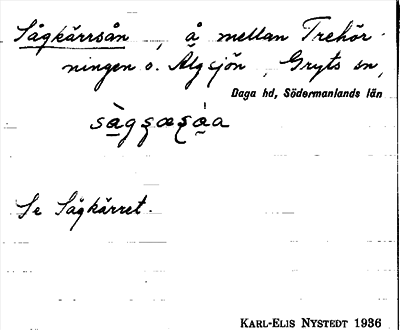 Sågkärrsån, å mellan Trehör-
ningen o. Älgsjön, Gryts sn,
Daga hd, Södermanlands län
Se Sågkärret.
KARL-ELIS NYSTEDT 1936